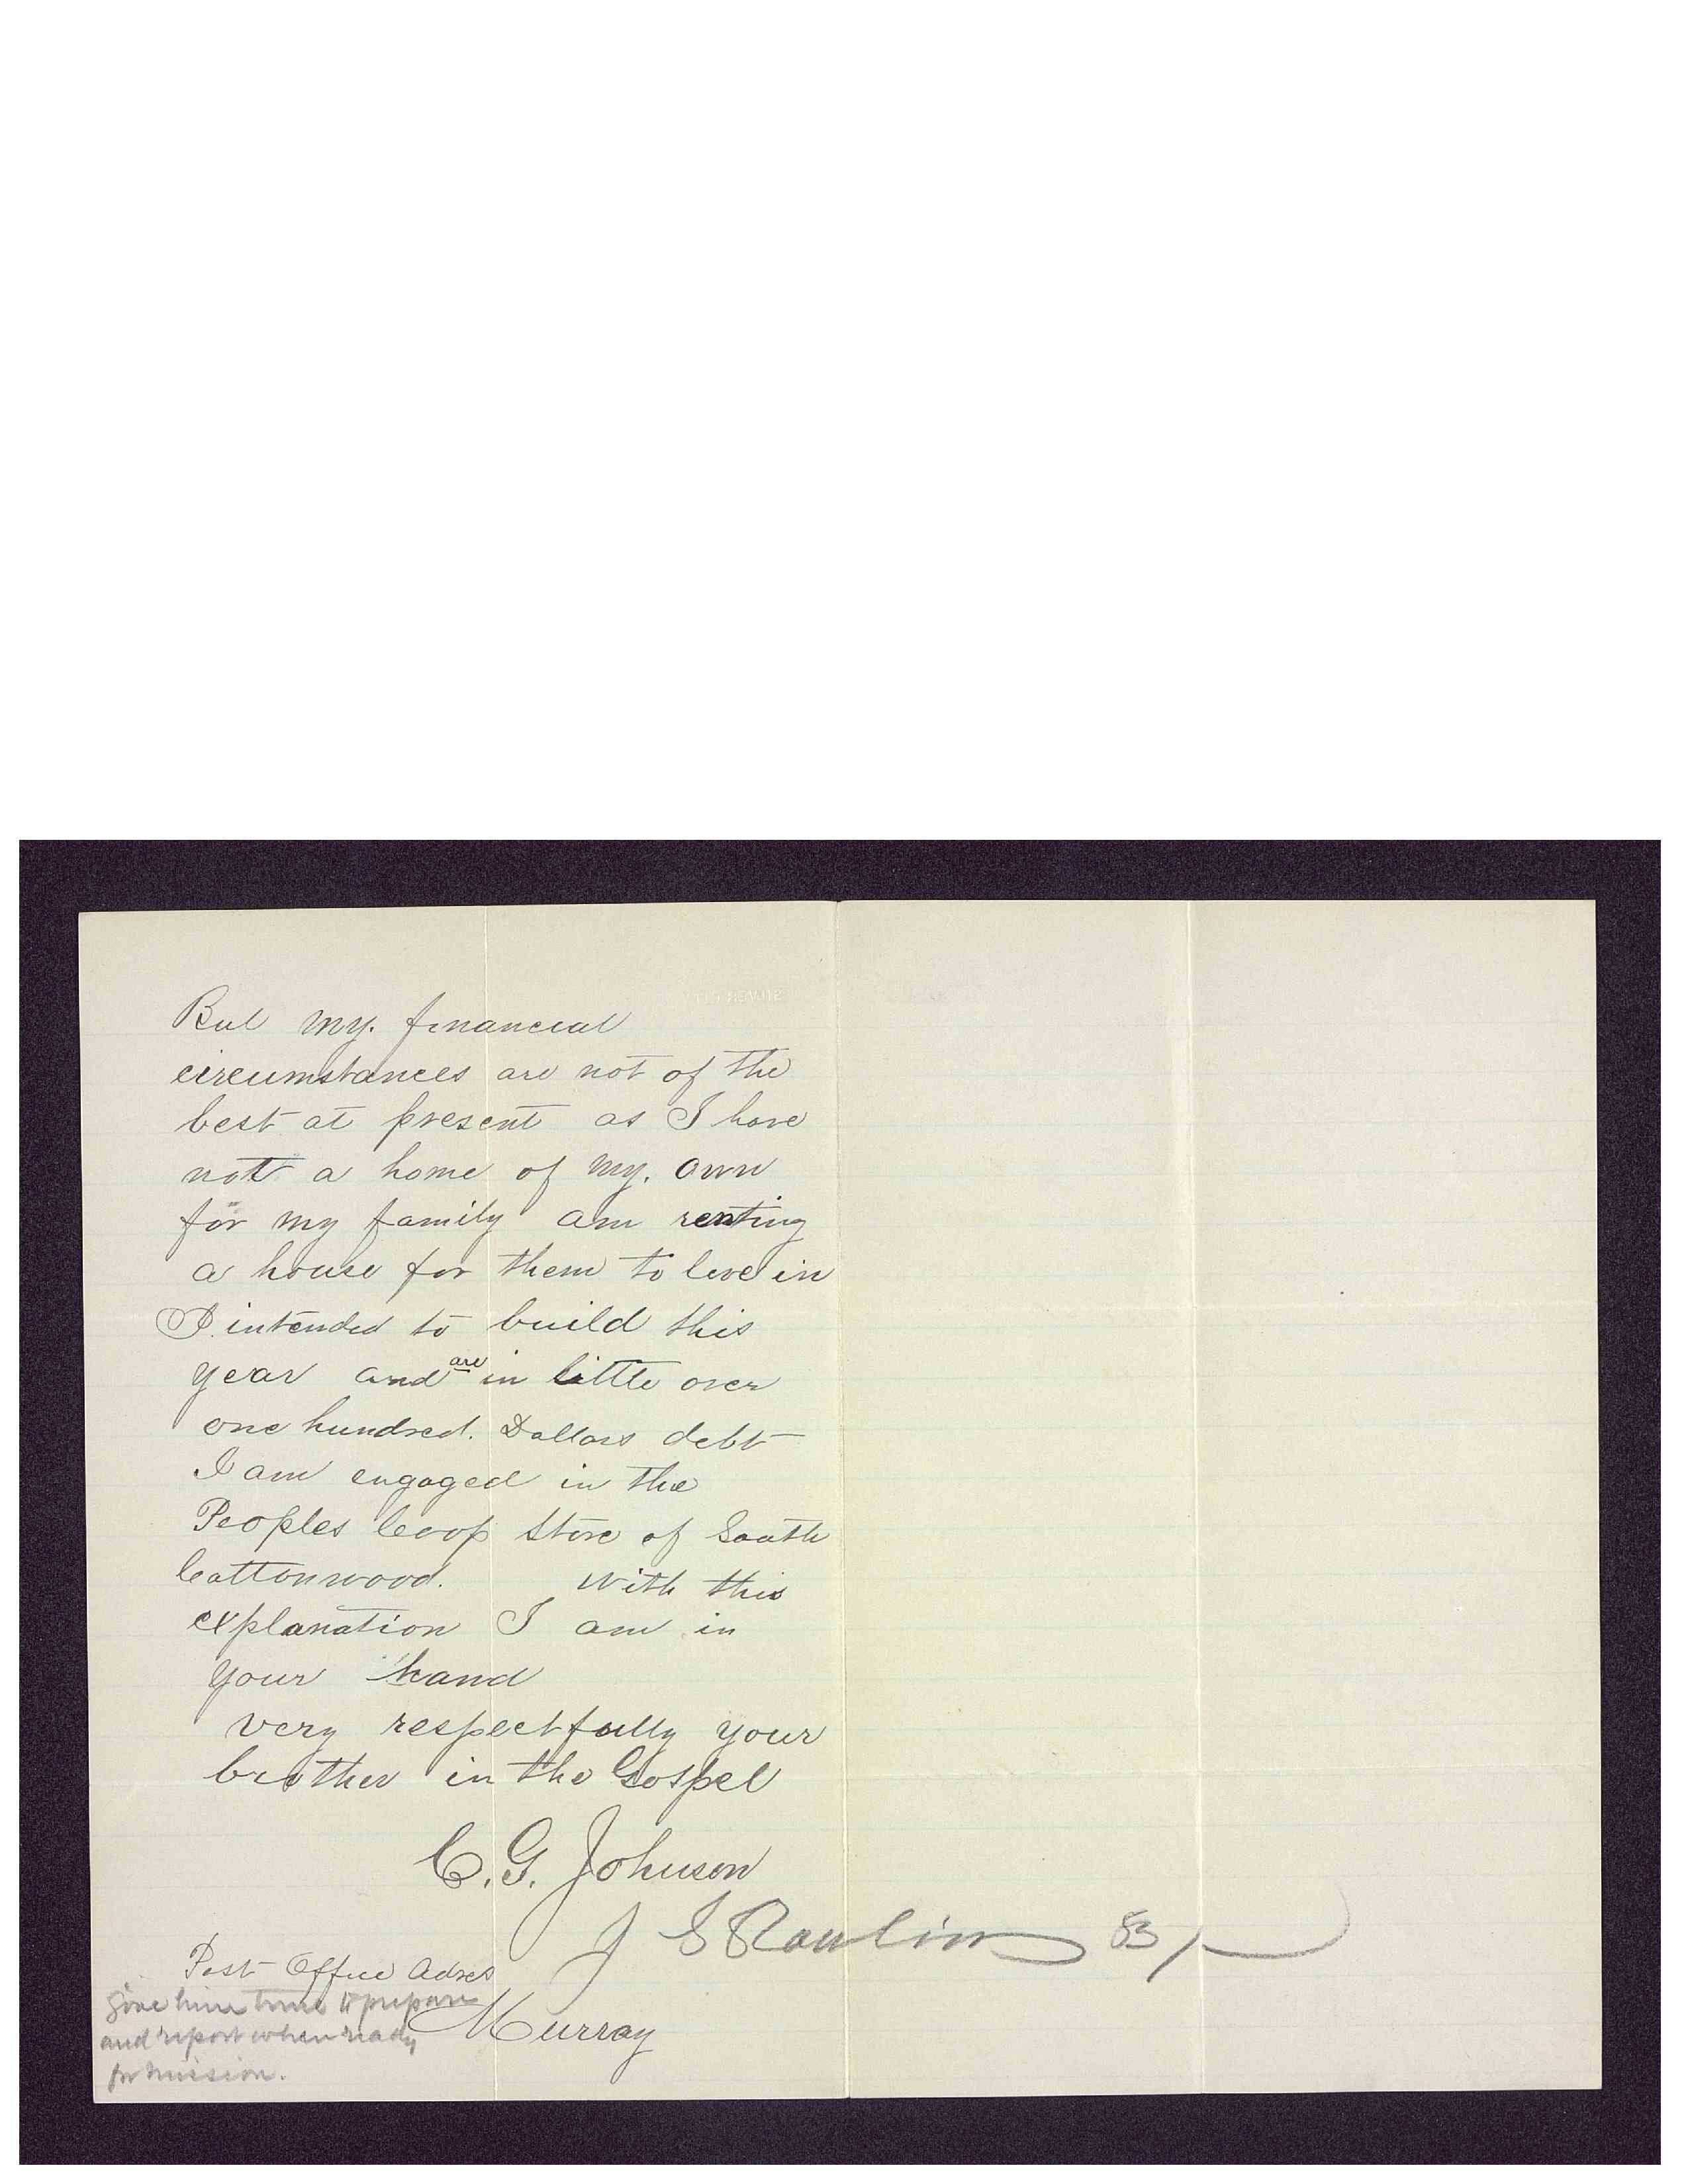 But my. financial
circumstances are not of the
best at present as I have
not a home of my. own
for my family am renting
a house for them to live in
I. intended to build this
year and are in little over
one hundred. Dollars debt
I am engaged in the
Peoples Coop Store of South
Cottonwood. With this
explanation I am in
your hand
very respectfully your
brother in the Gospel
C. G. Johnson
J S Rawlins
Post Office Adres
Murray
Give him time to prepare
and report when ready
for mission.